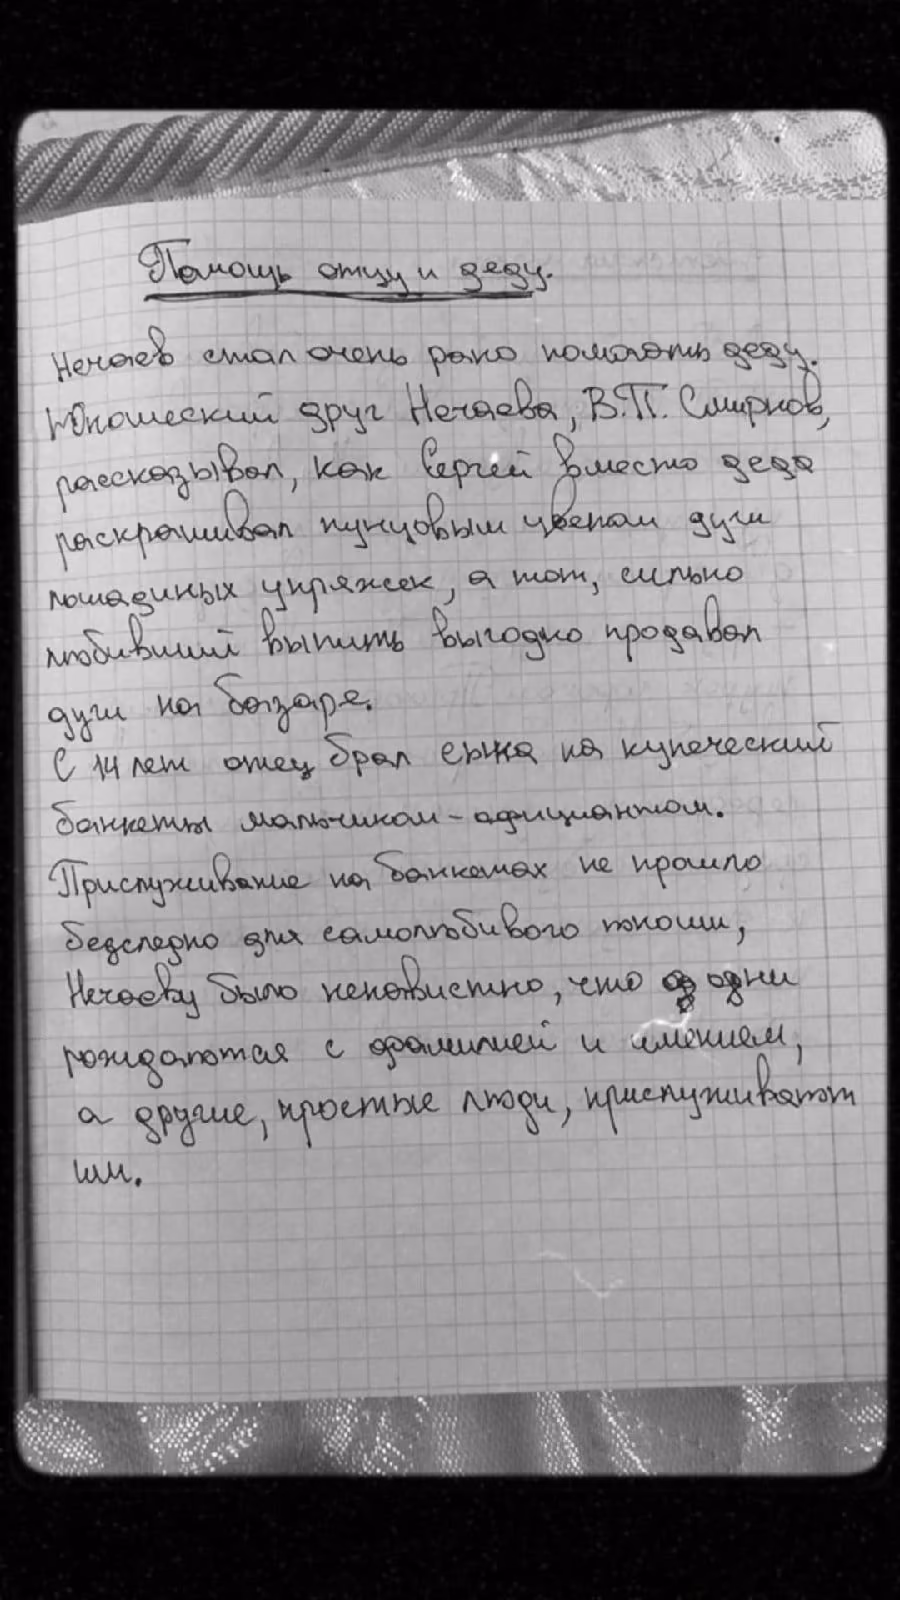 Помощь отцу и деду.
Нечаев стал очень рано помогать деду.
Юношеский друг Нечаева, В.П. Смирнов,
рассказывал, как Сергей вместо деда
раскрашивал пунцовым цветом дуги
лошадиных упряжек, а тот, сильно
любивший выпить выгодно продавал
дуги на базаре.
С 14 лет отец брал сына на купеческий
банкеты мальчиком-официантом.
Прислуживание на банкетах не прошло
бедследно для самолюбивого юноши,
Нечаеву было ненавистно, что одни
рождаются с фамилией и имением,
а другие, простые люди, прислуживают
им.